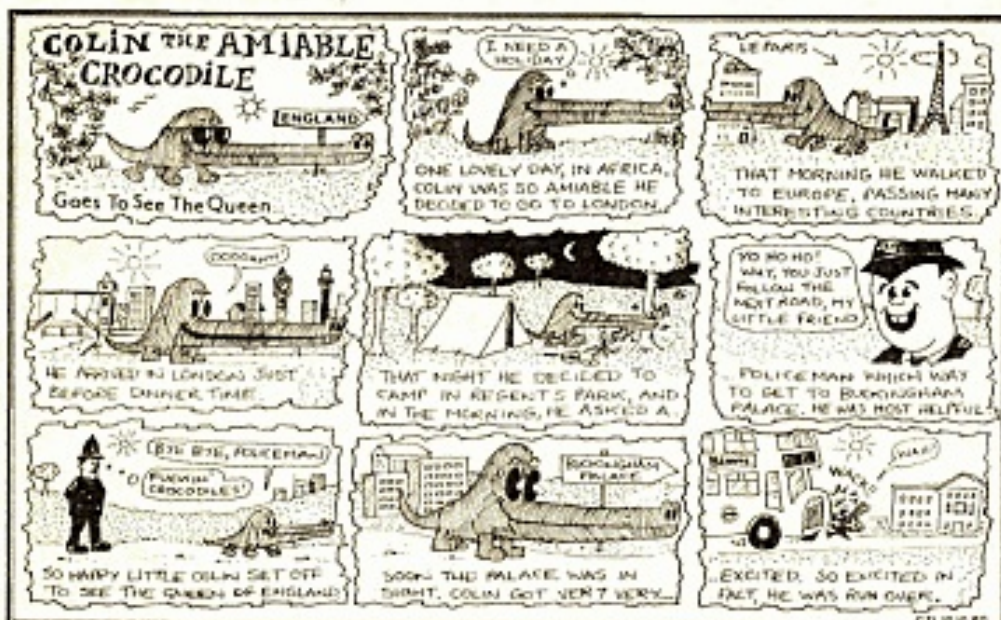 COLIN THE AMIABLE
CROCODILE
ENGLAND
Goes To See The Queen
I NEED A
HOLIDAY
ONE LOVELY DAY, IN AFRICA,
COLIN WAS SO AMIABLE HE
DECIDED TO GO TO LONDON.
LE PARIS
THAT MORNING HE WALKED
TO EUROPE, PASSING MANY
INTERESTING COUNTRIES.
HE ARRIVED IN LONDON JUST
BEFORE DINNER TIME.
THAT NIGHT HE DECIDED TO
CAMP IN REGENTS PARK, AND
IN THE MORNING, HE ASKED A..
YO HO HO!
WHY, YOU JUST
FOLLOW THE
NEXT ROAD, MY
LITTLE FRIEND
..POLICEMAN WHICH WAY
TO GET TO BUCKINGHAM
PALACE. HE WAS MOST HELPFUL.
BYE BYE, POLICEMAN
CROCODILES!
SO HAPPY LITTLE COLIN SET OFF
TO SEE THE QUEEN OF ENGLAND
BUCKINGHAM
PALACE
SOON THE PALACE WAS IN
SIGHT. COLIN GOT VERY VERY...
WAK!
..EXCITED. SO EXCITED IN
FACT, HE WAS RUN OVER.